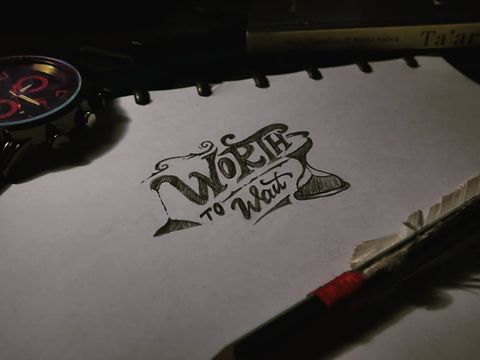 Ta'ar
WORTH
TO Wait